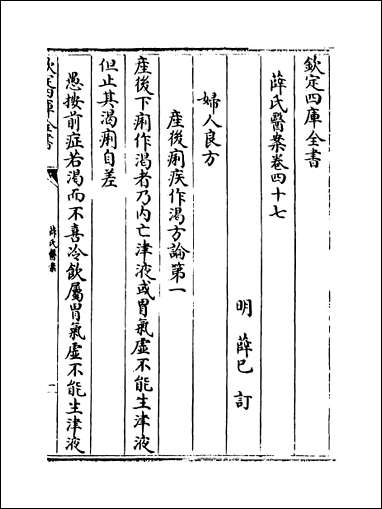 欽定四庫全書
薛氏醫案卷四十七
明 薛己 訂
婦人良方
産後痢疾作渴方論第一
産後下痢作渴者乃内亡津液或胃氣虚不能生津液
但止其渴痢自差
愚按前症若渴而不喜冷飲屬胃氣虚不能生津液
欽定四庫全書
薛氏醫案